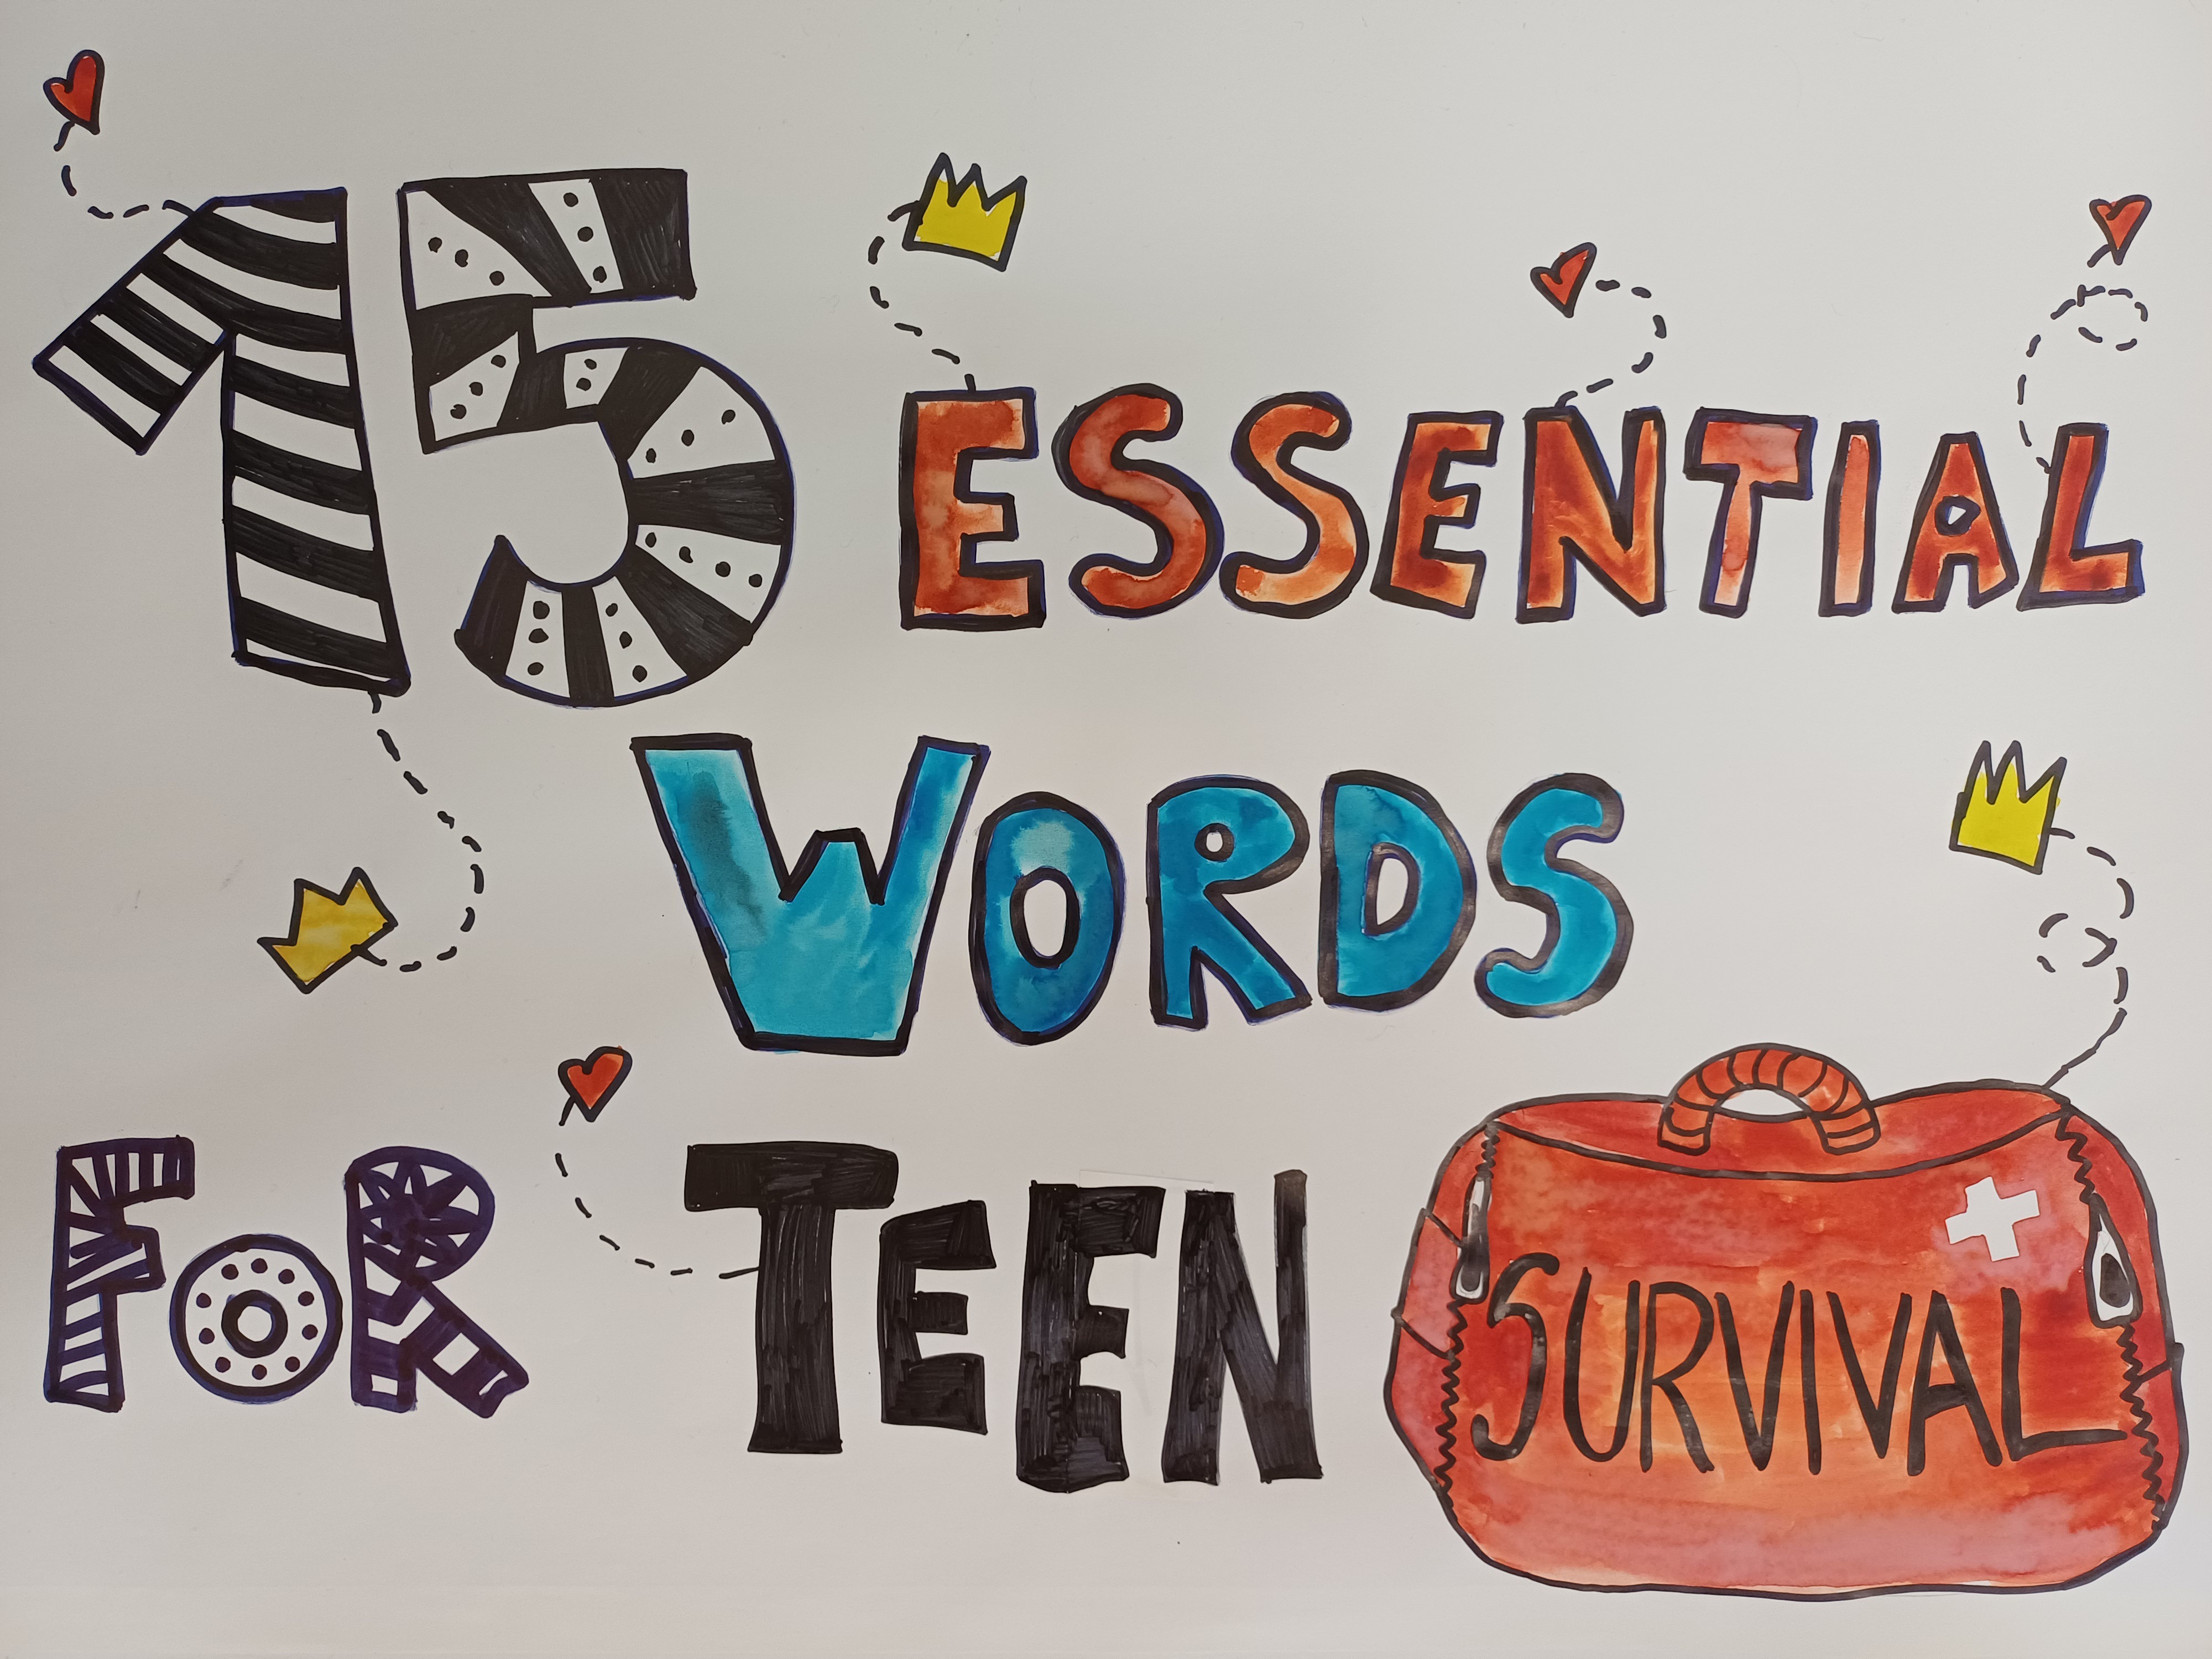 15 ESSENTIAL
WORDS
FOR TEEN SURVIVAL